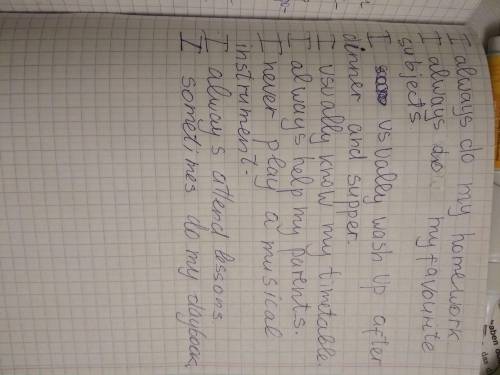 I always do my homework
I always do my favourite
subjects.
I usually wash up after
dinner and supper.
I usually know my timetable.
I always help my parents.
I never play a musical
instrument.
I always attend lessons
I sometimes do my daybook.